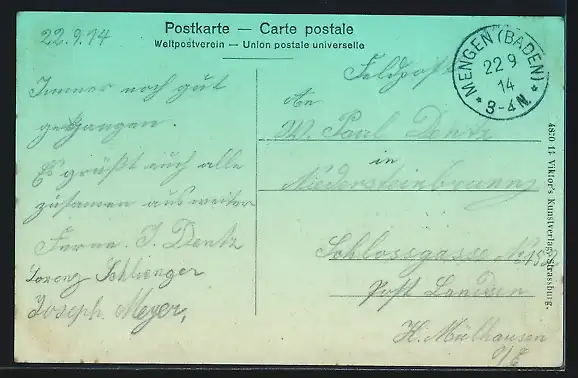 22.9.14
Postkarte — Carte postale
Weltpostverein — Union postale universelle
MENGEN (BADEN)
22 9
14
* 3-4 N. *
Feldpost
Immer noch gut
gegangen.
Es grüßt euch alle
zusamen aus weiter
Ferne. J. Dentz
Lorenz Schlienger
Joseph Meyer,
An
W. Paul Dentz
in
Niedersteinbrunn
Schlossgasse No 152
Post Landsen
K. Mülhausen
i/E
4820 14 Viktor's Kunstverlag, Strassburg.